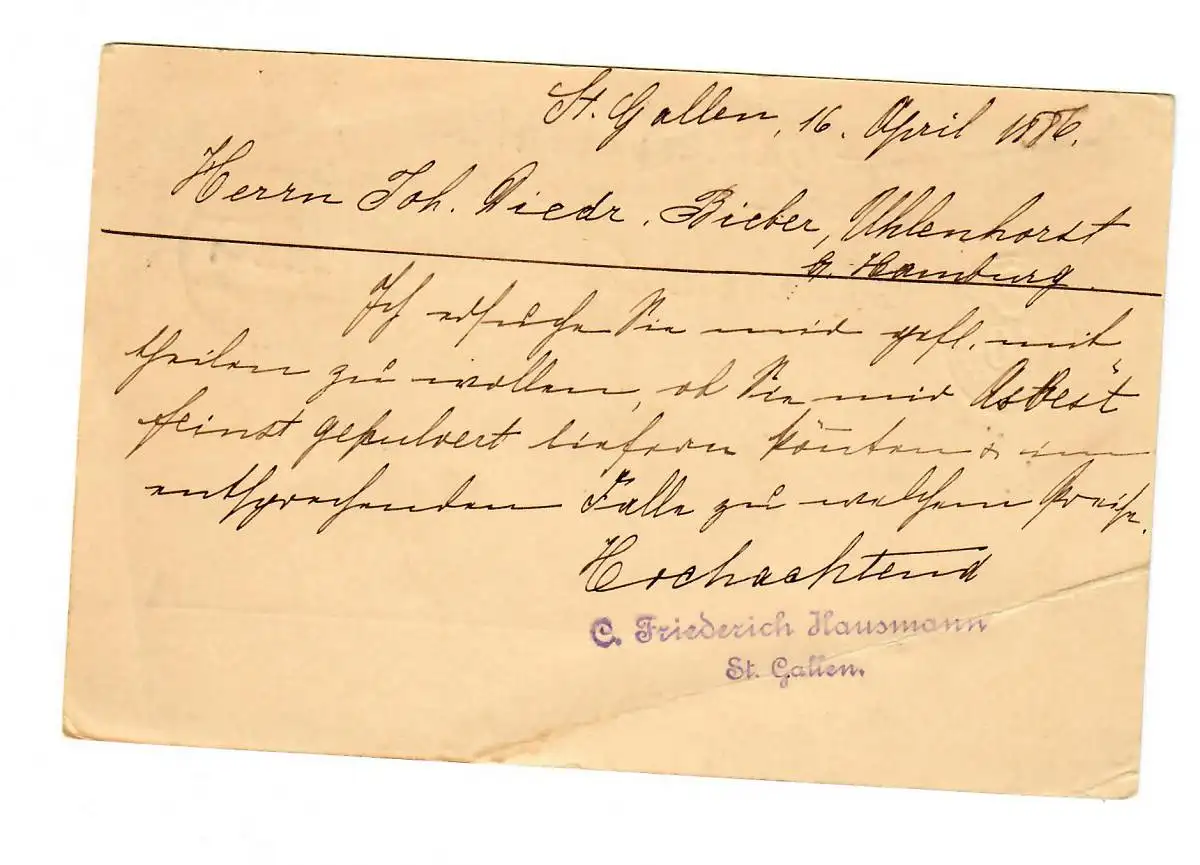 St. Gallen, 16. April 1886.
Herrn Joh. Diedr. Bieber, Uhlenhorst
b. Hamburg.
Ich ersuche Sie mir gefl. mit
theilen zu wollen, ob Sie mir Asbest
feinst gepulvert liefern könnten & im
entsprechenden Falle zu welchem Preise.
Hochachtend
C. Friederich Hausmann
St. Gallen.